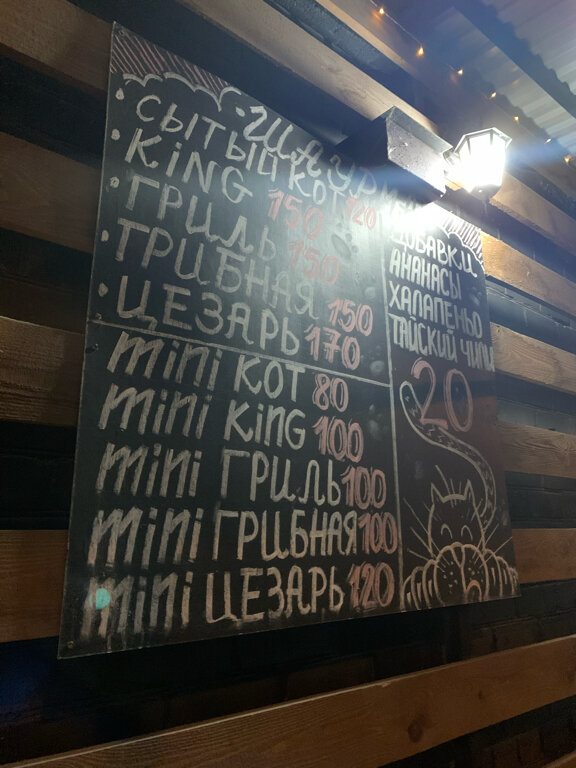 ШАУРМА
СЫТЫЙ КОТ 120
KiNG 150
ГРИЛЬ 150
ГРИБНАЯ 150
ЦЕЗАРЬ 170
mini КОТ 80
mini KiNG 100
mini ГРИЛЬ 100
mini ГРИБНАЯ 100
mini ЦЕЗАРЬ 120
ДОБАВКИ
АНАНАСЫ
ХАЛАПЕНЬО
ТАЙСКИЙ ЧИЛИ
20